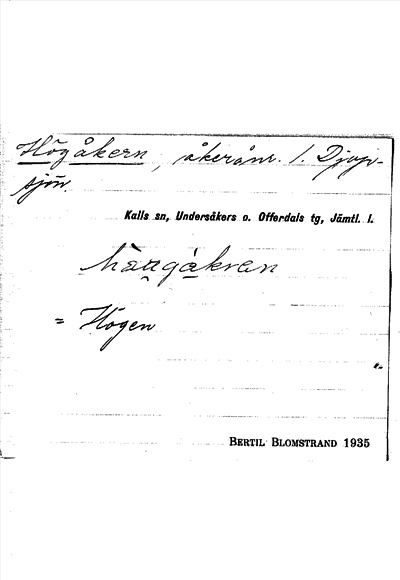 Högåkern, åkeråmr. l. Djup-
sjön.
Kalls sn, Undersåkers o. Offerdals tg, Jämtl. l.
= Högen
BERTIL BLOMSTRAND 1935